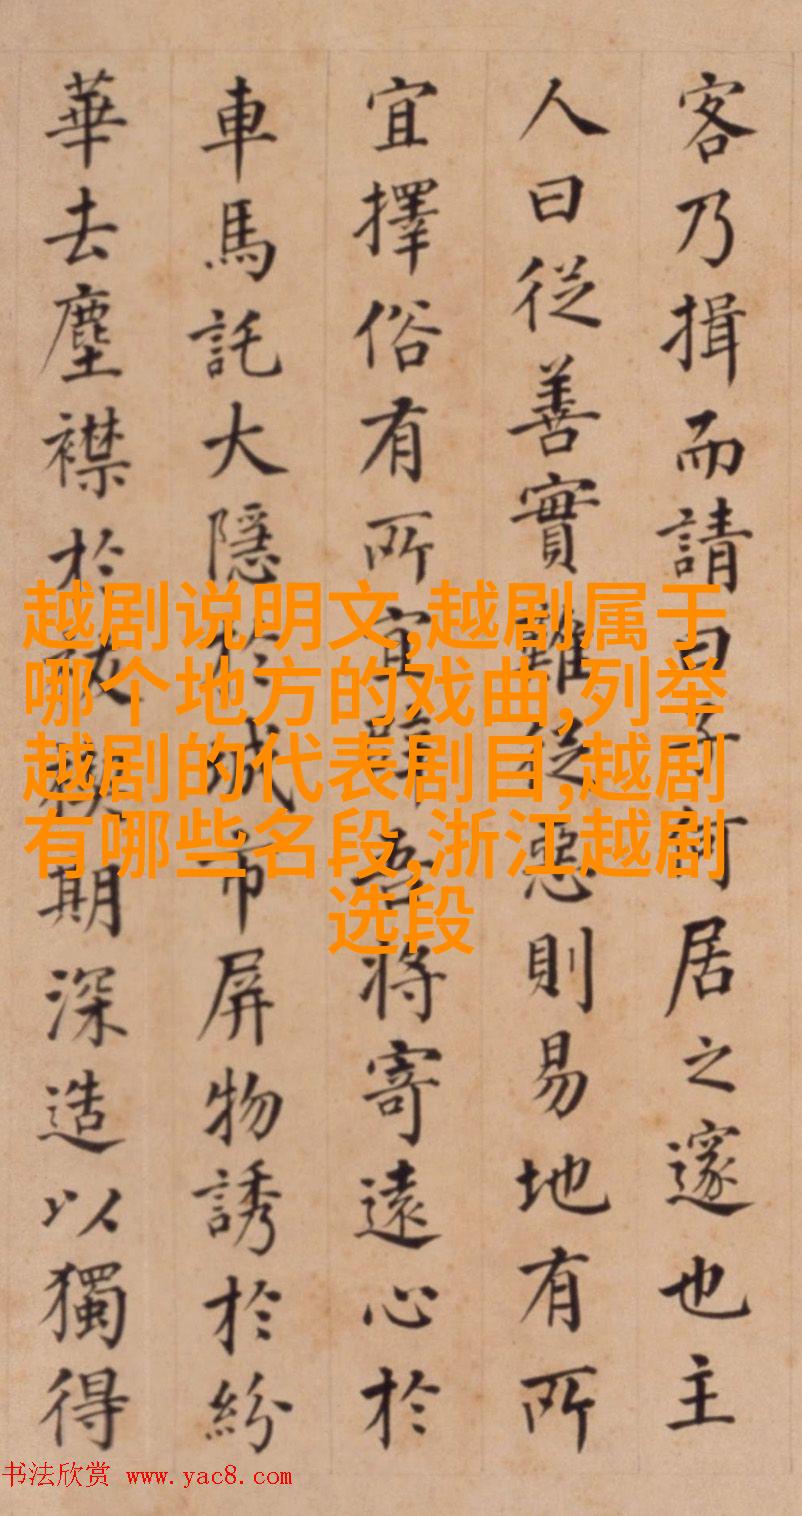 客乃揖而請曰子何居之邃也主
人曰從善實難從惡則易地有所
宜擇俗有所宜吾將寄遠心於
車馬託大隱於城市屏物誘於紛
華去塵襟於期深造以獨得
越剧说明文,越剧属于
哪个地方的戏曲,列举
越剧的代表剧目,越剧
有哪些名段,浙江越剧
选段
书法欣赏 www.yac8.com